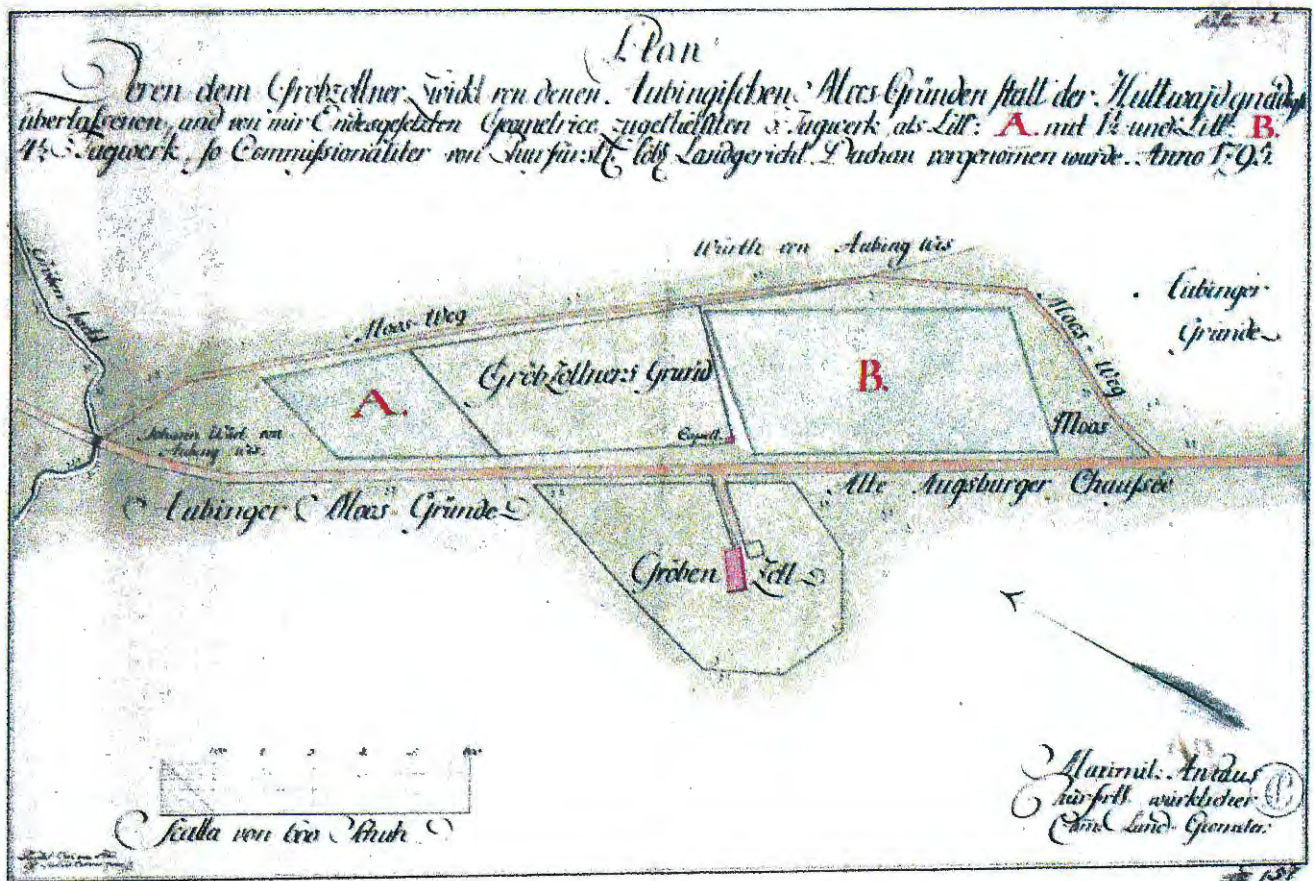 Plan
Deren dem Gröbzellner Zwickl von denen Aubingischen Moos Gründen statt der Huttwaid gnädigst
überlassenen, und von mir Endesgesetzten Geometrice zugetheilten Tagwerk als Litt: A. mit 1½ und Litt: B.
4½ Tagwerk, so Commissionaliter von Löbl Landgericht Dachau vorgenomen wurde. Anno 179
Würth von Aubing Wis
Moos-Weg
Aubinger
Gründe
Moos-Weg
Gröbzellners Grund
A.
B.
Capell
Moos
Johann Würt von
Aubing Wis.
Alte Augsburger Chaussée
Aubinger Moos Gründe
Gröben Zell
Scalla von 600 Schuh
Maximil:
Churfrtl würklicher
Land-Geometer